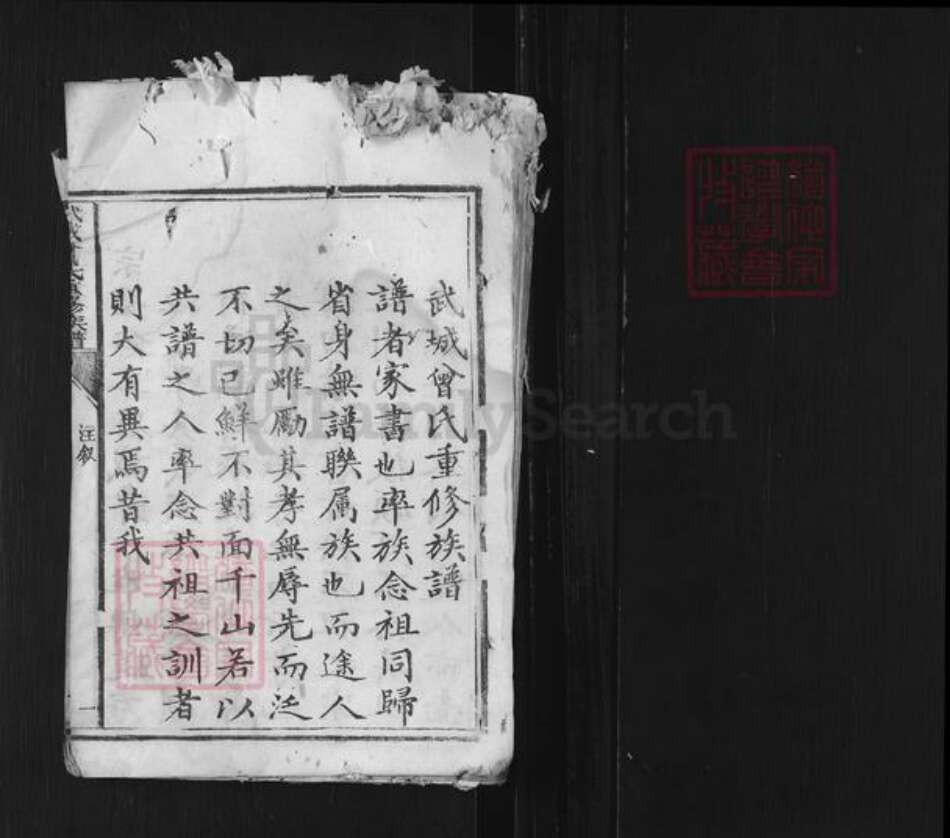 武城曾氏重修族譜
譜者家書也率族念祖同歸
省身無譜聯属族也而途人
之矣雖勵其孝無辱先而泛
不切已鮮不對面千山若以
共譜之人率念共祖之訓者
則大有異焉昔我
汪叙
一
FamilySearch